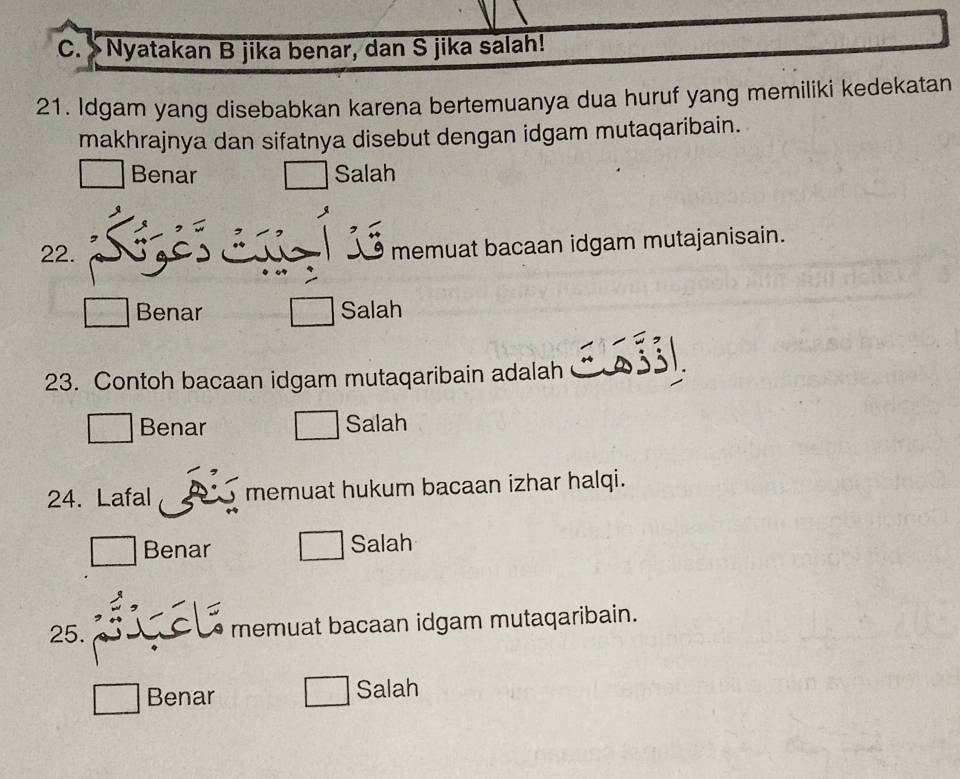 C. Nyatakan B jika benar, dan S jika salah!
21. Idgam yang disebabkan karena bertemuanya dua huruf yang memiliki kedekatan
makhrajnya dan sifatnya disebut dengan idgam mutaqaribain.
Benar Salah
22. قَدْ أُجِيْبَتْ دَّعْوَتُكُمْ memuat bacaan idgam mutajanisain.
Benar Salah
23. Contoh bacaan idgam mutaqaribain adalah اِذْذَّهَبَ.
Benar Salah
24. Lafal يَنْهَى memuat hukum bacaan izhar halqi.
Benar Salah
25. مَّاعَبَدْتُّمْ memuat bacaan idgam mutaqaribain.
Benar Salah